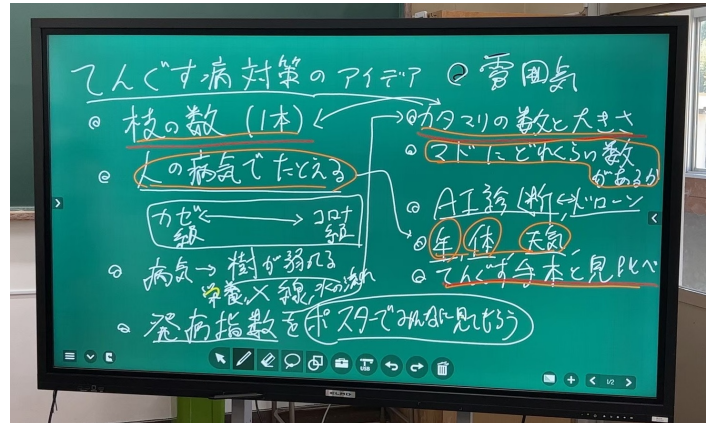 てんぐす病対策のアイデア
雰囲気
枝の数(1本)
人の病気でたとえる
カゼ級 ↔ コロナ級
病気→樹が弱れる
栄養,X線,水の流れ
発病指数をポスターでみんなに見てもらう
カタマリの数と大きさ
マドにどれくらい数
があるか
AI診断↔ドローン
年 体 天気
てんぐす手本と見比べ
1/2